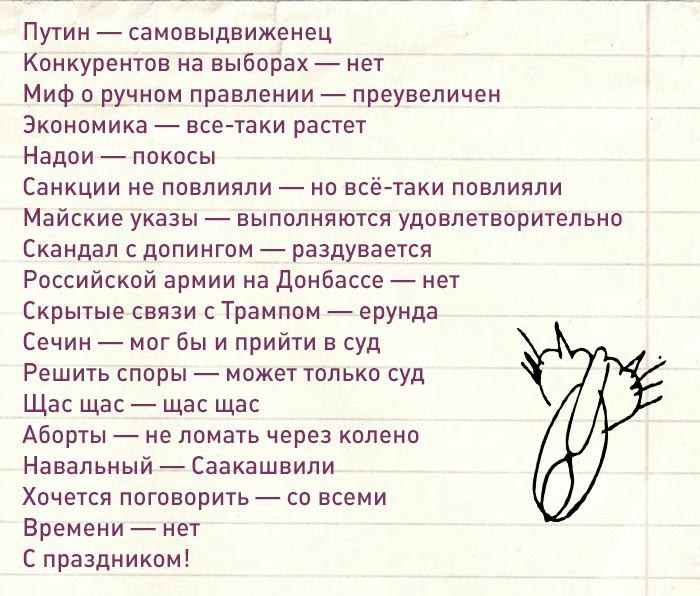 Путин — самовыдвиженец
Конкурентов на выборах — нет
Миф о ручном правлении — преувеличен
Экономика — все-таки растет
Надои — покосы
Санкции не повлияли — но всё-таки повлияли
Майские указы — выполняются удовлетворительно
Скандал с допингом — раздувается
Российской армии на Донбассе — нет
Скрытые связи с Трампом — ерунда
Сечин — мог бы и прийти в суд
Решить споры — может только суд
Щас щас — щас щас
Аборты — не ломать через колено
Навальный — Саакашвили
Хочется поговорить — со всеми
Времени — нет
С праздником!